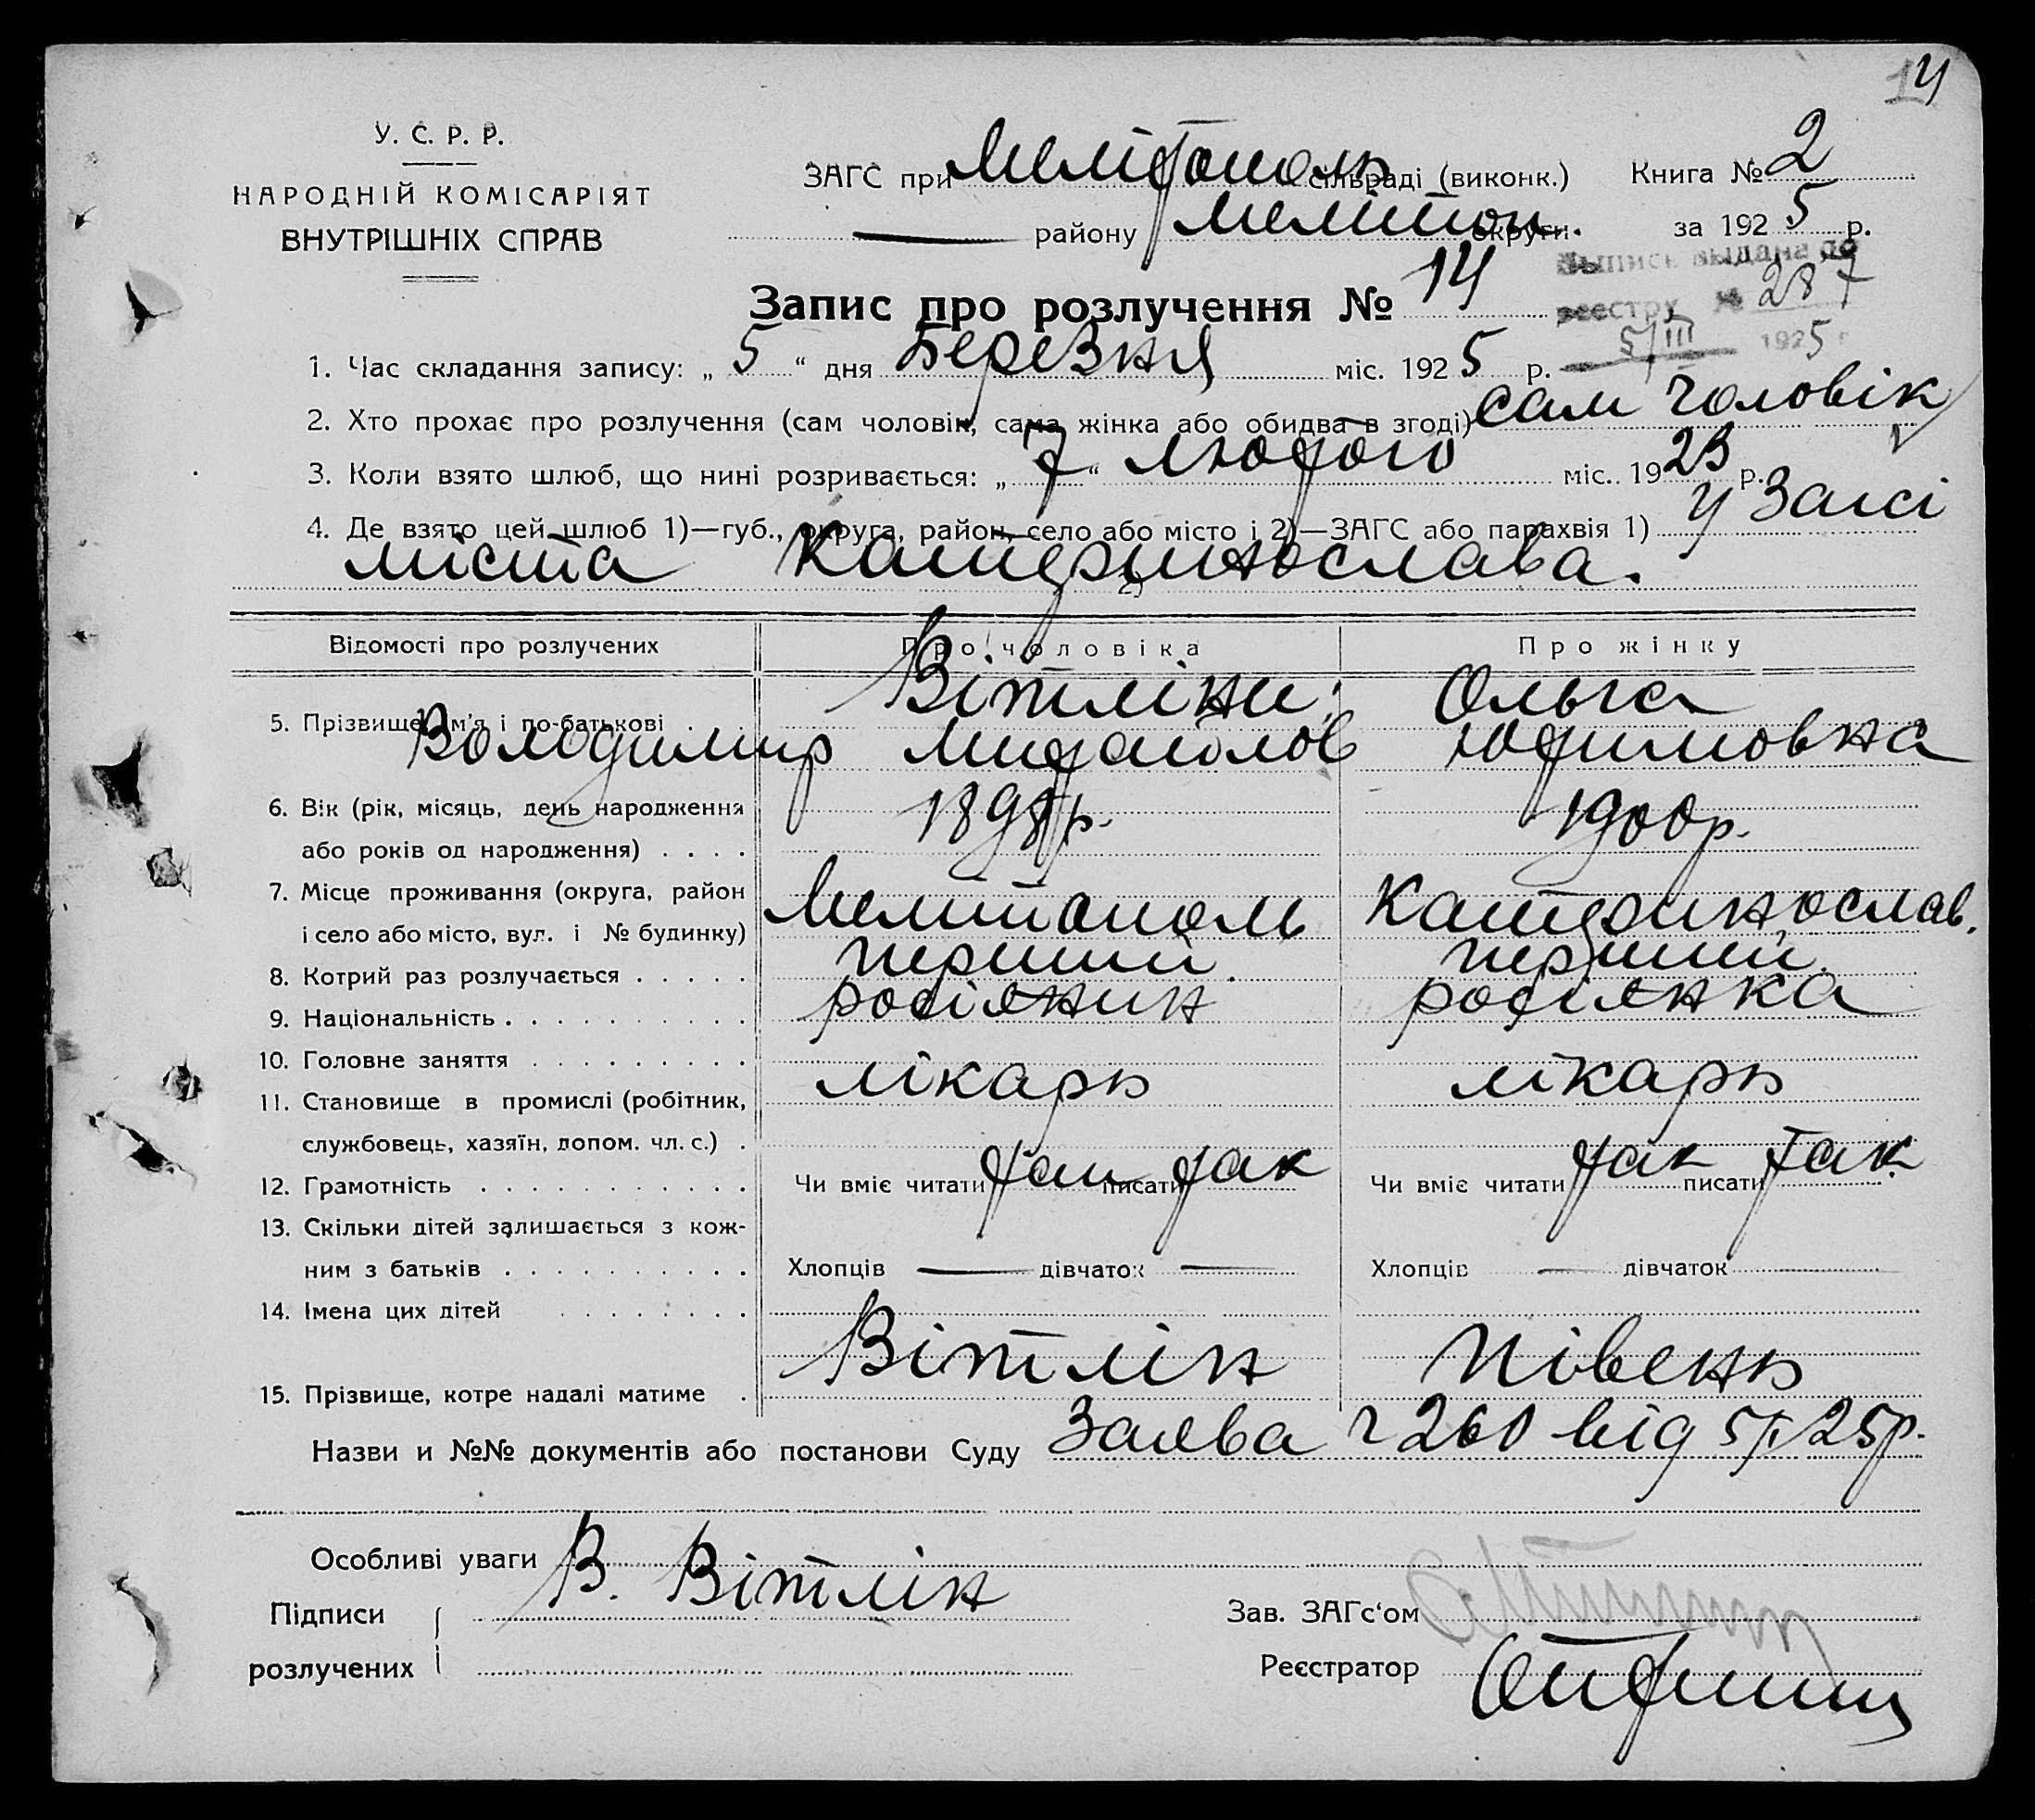 14
У. С. Р. Р.
НАРОДНІЙ КОМІСАРІЯТ
ВНУТРІШНІХ СПРАВ
ЗАГС при Мелітополь сільраді (виконк.) Книга № 2
району Меліtоп. округи за 1925 р.
Выпись выдана по
реестру № 287
5/III 1925 г
Запис про розлучення № 14
1. Час складання запису: „ 5 “ дня Березня міс. 1925 р.
2. Хто прохає про розлучення (сам чоловік, сама жінка або обидва в згоді) сам чоловік
3. Коли взято шлюб, що нині розривається: „ 7 “ лютого міс. 1923 р.
4. Де взято цей шлюб 1)—губ., округа, район, село або місто і 2)—ЗАГС або парахвія 1) у Загсі
міста Катеринослава.
2)
Відомості про розлучених Про чоловіка Про жінку
5. Прізвище, ім'я і по-батькові Вітліни: Ольга
Володимир Михайлов Юхимовна
6. Вік (рік, місяць, день народження
або років од народження) 1898 р. 1900 р.
7. Місце проживання (округа, район
і село або місто, вул. і № будинку) Мелитополь Катеринослав.
8. Котрий раз розлучається перший. перший.
9. Національність росіянин росіянка
10. Головне заняття лікарь лікарь
11. Становище в промислі (робітник,
службовець, хазяїн, допом. чл. с.)
12. Грамотність Чи вміє читати так писати так Чи вміє читати так писати так.
13. Скільки дітей залишається з кож-
ним з батьків Хлопців — дівчаток — Хлопців — дівчаток
14. Імена цих дітей
15. Прізвище, котре надалі матиме Вітлін Півень
Назви и №№ документів або постанови Суду Заява ч 260 від 5/III 25 р.
Особливі уваги
Підписи В. Вітлін
розлучених
Зав. ЗАГс‘ом
Реєстратор